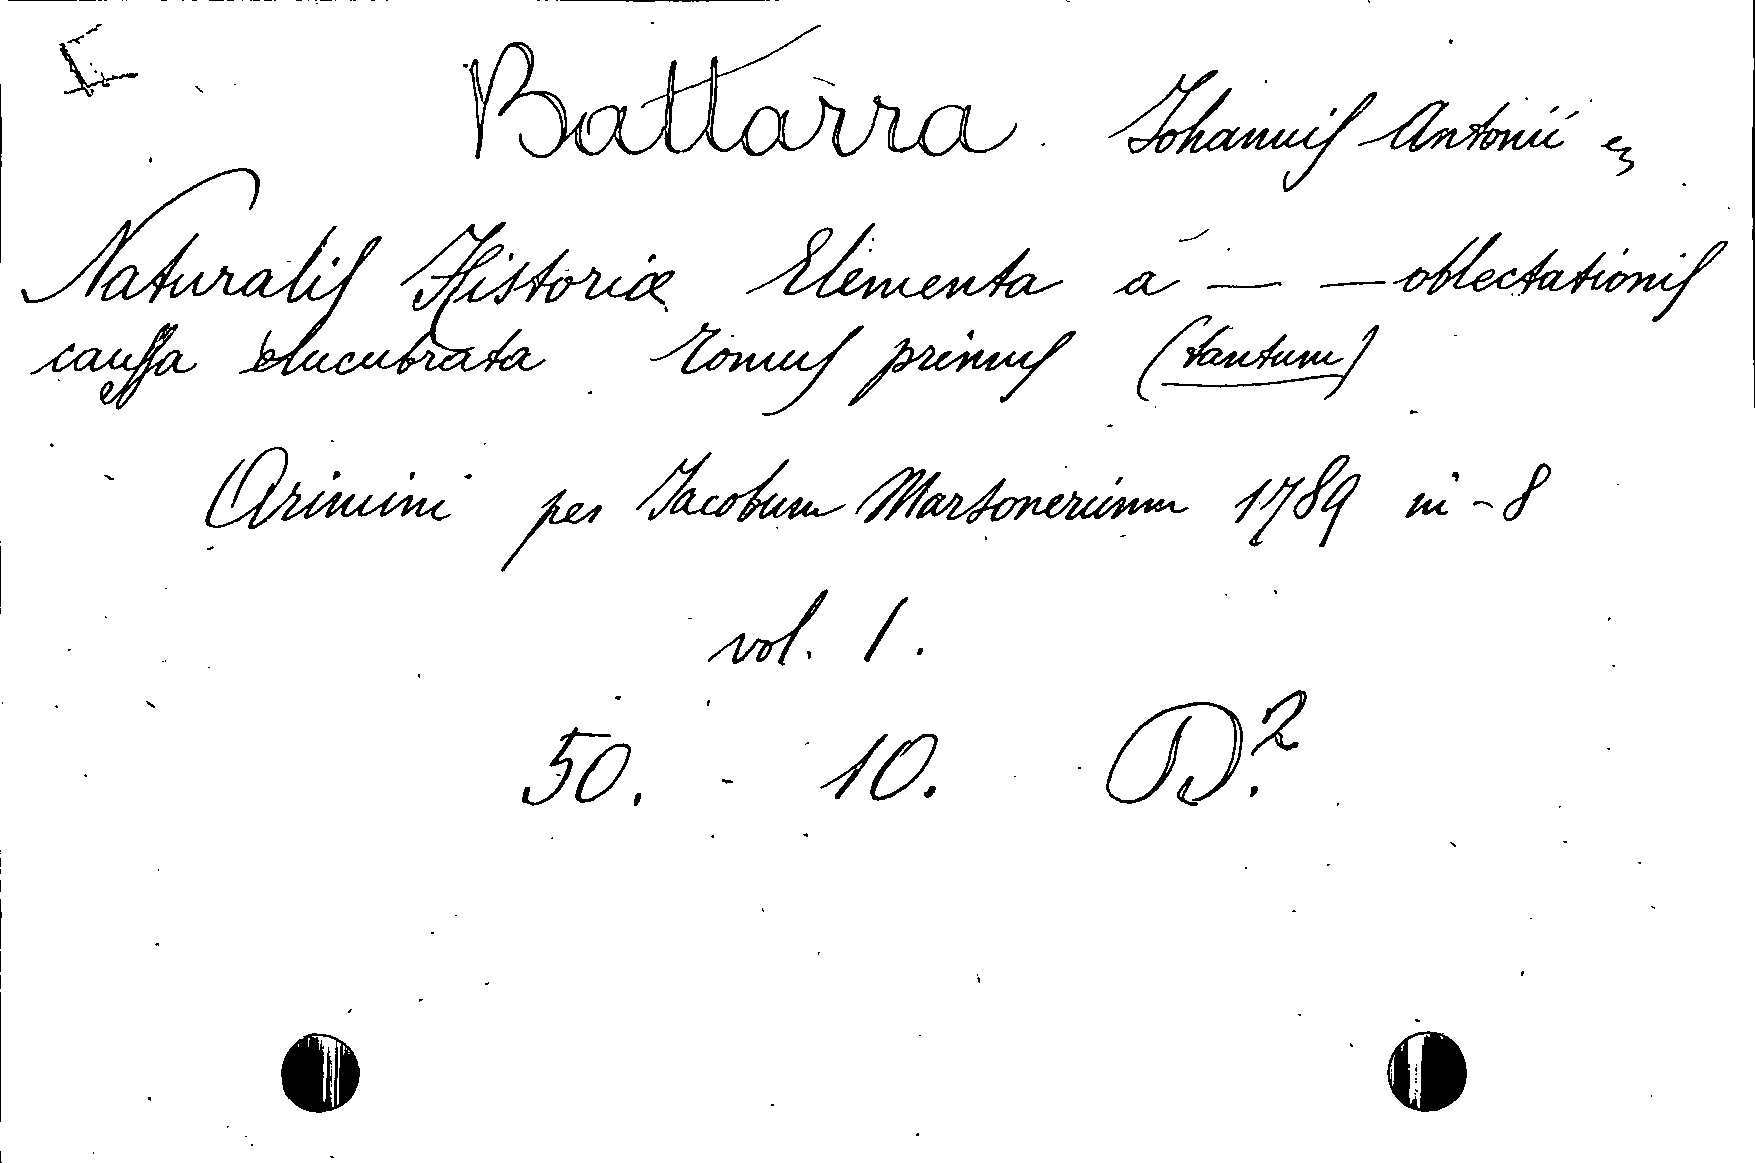 Battarra Johannis Antonii
Naturalis Historiæ Elementa a — — oblectationis
caussa elucubrata Tomus primus (tantum)
Arimini per Jacobum Marsonerium 1789 in-8
vol. 1.
50. - 10. D.2